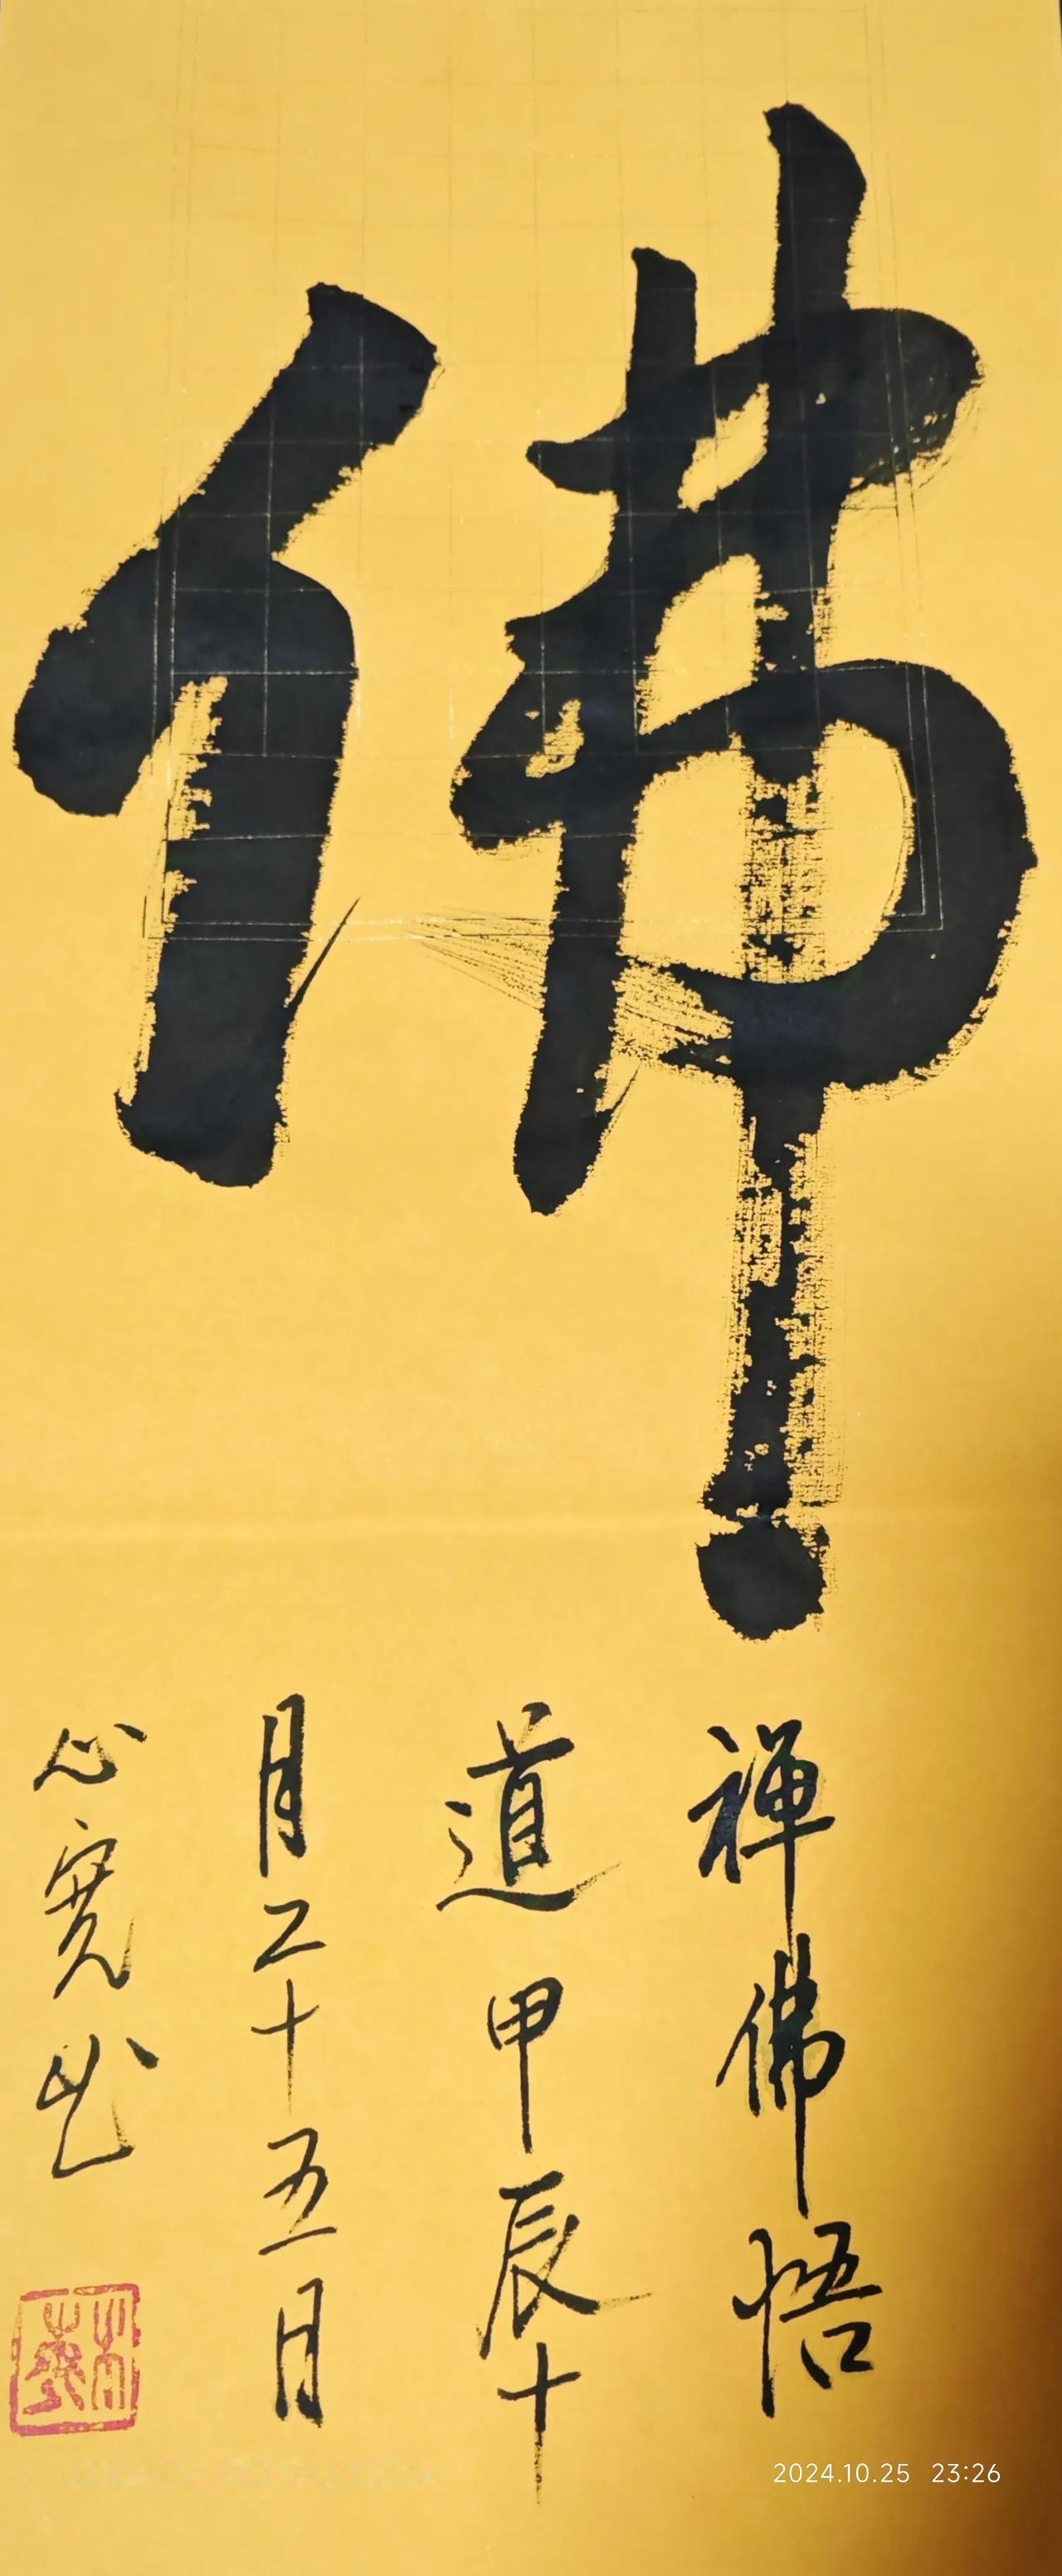 佛
禅佛悟
道甲辰十
月二十五日
心寬书
2024.10.25 23:26